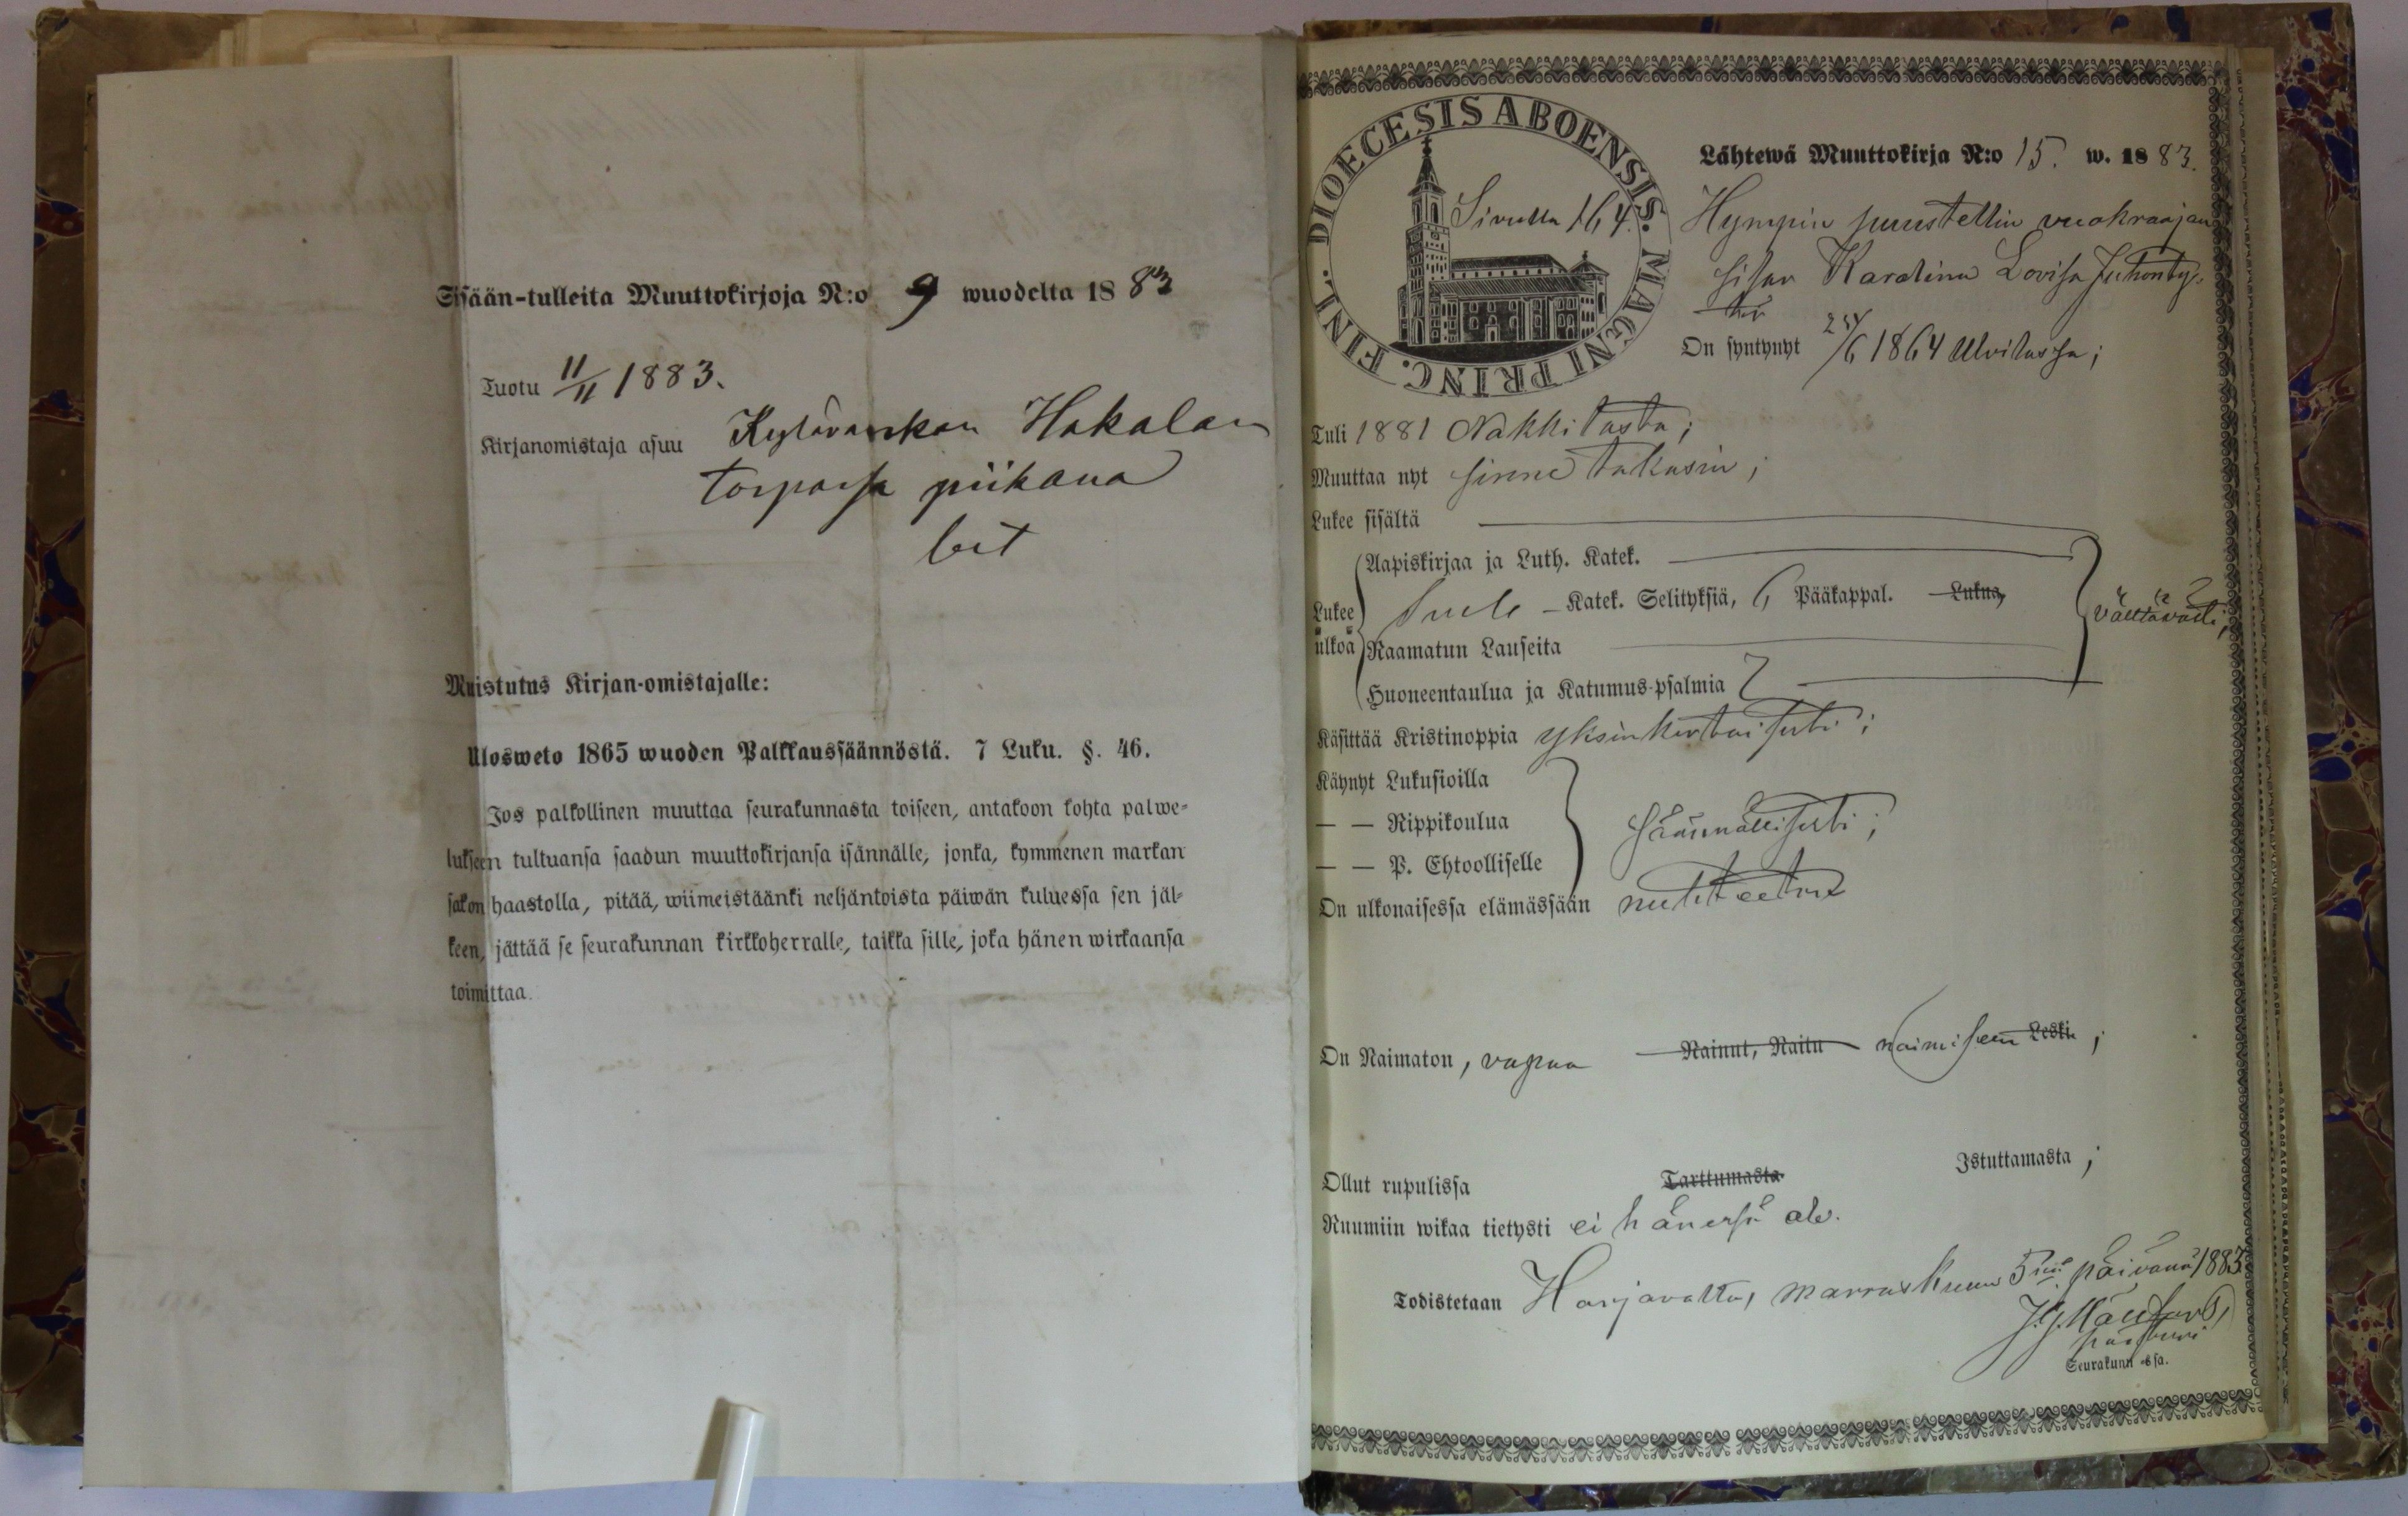 Sisään-tulleita Muuttokirjoja N:o 9 wuodelta 1883
Tuotu 11/11 1883.
Kirjanomistaja asuu Kylävainkon Hakalan
torpassa piikana
Muistutus Kirjan-omistajalle:
Ulosweto 1865 wuoden Palkkaussäännöstä. 7 Luku. §. 46.
Jos palkollinen muuttaa seurakunnasta toiseen, antakoon kohta palwe-
lukseen tultuansa saadun muuttokirjansa isännälle, jonka, kymmenen markan
sakon haastolla, pitää, wiimeistäänki neljäntoista päiwän kuluessa sen jäl-
keen, jättää se seurakunnan kirkkoherralle, taikka sille, joka hänen wirkaansa
toimittaa.
DIOECESIS ABOENSIS. MAGNI PRINC. FINL.
Sivulla 164.
Lähtewä Muuttokirja N:o 15. w. 1883.
Hympin puustellin vuokraajan
sisar Karolina Lovisa Juhonty-
tär
On syntynyt 24/6 1864 Ulvilassa;
Tuli 1881 Nakkilasta;
Muuttaa nyt sinne takasin;
Lukee sisältä
Aapiskirjaa ja Luth. Katek.
Lukee ulkoa
Katek. Selityksiä, 6 Pääkappal. Lukua,
välttävästi;
Raamatun Lauseita
Huoneentaulua ja Katumus-psalmia
Käsittää Kristinoppia yksinkertaisesti;
Käynyt Lukusioilla
— — Rippikoulua
säännöllisesti;
— — P. Ehtoolliselle
On ulkonaisessa elämässään nuhteeton
On Naimaton, vapaa Nainut, Naitu naimiseen Leski;
Ollut rupulissa Tarttumasta Istuttamasta;
Ruumiin wikaa tietysti ei hänessä ole.
Todistetaan Harjavalta, marraskuun 5 nä päivänä 1883
pastori
Seurakunn -ssa.